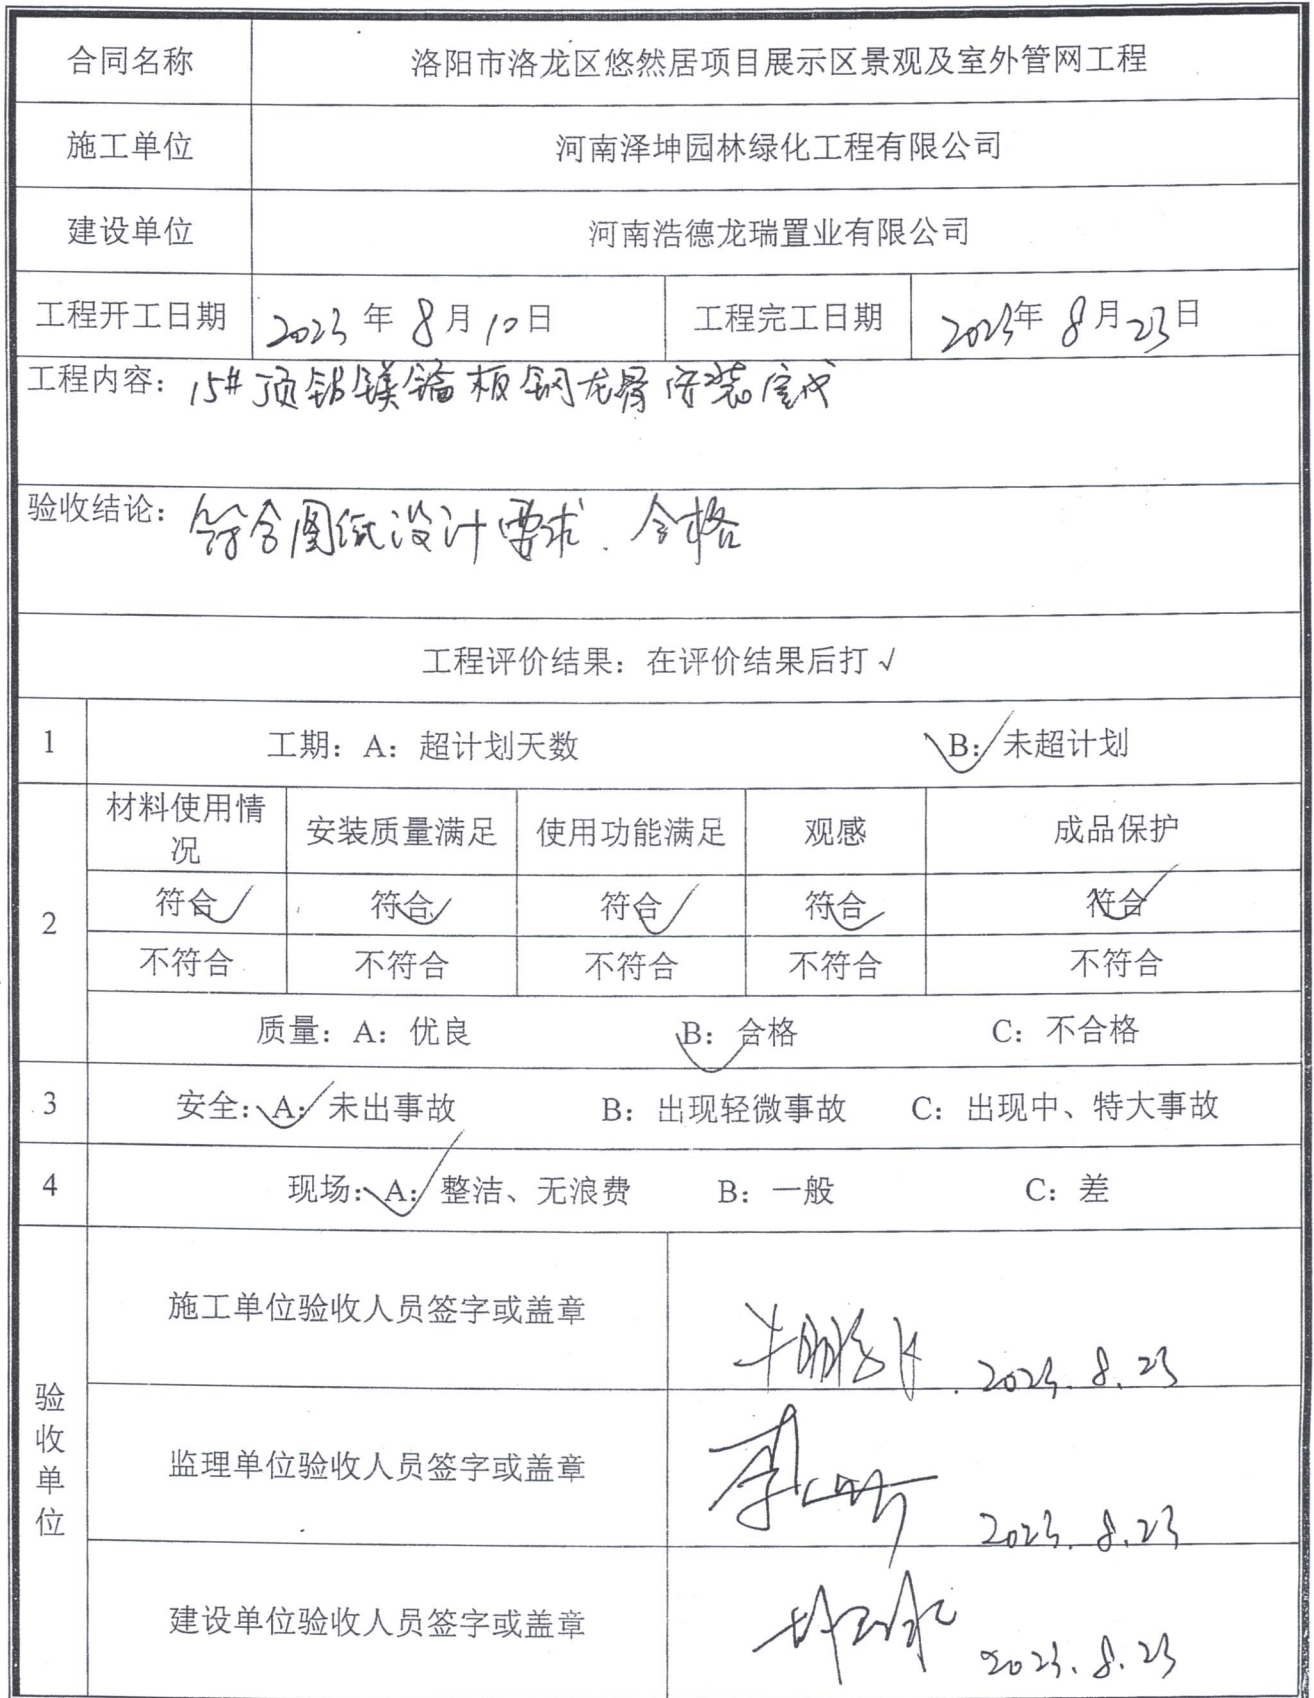 合同名称 洛阳市洛龙区悠然居项目展示区景观及室外管网工程
施工单位 河南泽坤园林绿化工程有限公司
建设单位 河南浩德龙瑞置业有限公司
工程开工日期 2023年8月10日 工程完工日期 2023年8月23日
工程内容：15#顶铝镁锰板钢龙骨安装完成
验收结论：符合图纸设计要求.合格
工程评价结果：在评价结果后打√
1 工期：A：超计划天数 B：√未超计划
材料使用情
况 安装质量满足 使用功能满足 观感 成品保护
符合√ 符合√ 符合√ 符合√ 符合√
2
不符合 不符合 不符合 不符合 不符合
质量：A：优良 B：√合格 C：不合格
3 安全：A：√未出事故 B：出现轻微事故 C：出现中、特大事故
4 现场：A：√整洁、无浪费 B：一般 C：差
验收单位
施工单位验收人员签字或盖章 2023.8.23
监理单位验收人员签字或盖章 2023.8.23
建设单位验收人员签字或盖章 2023.8.23